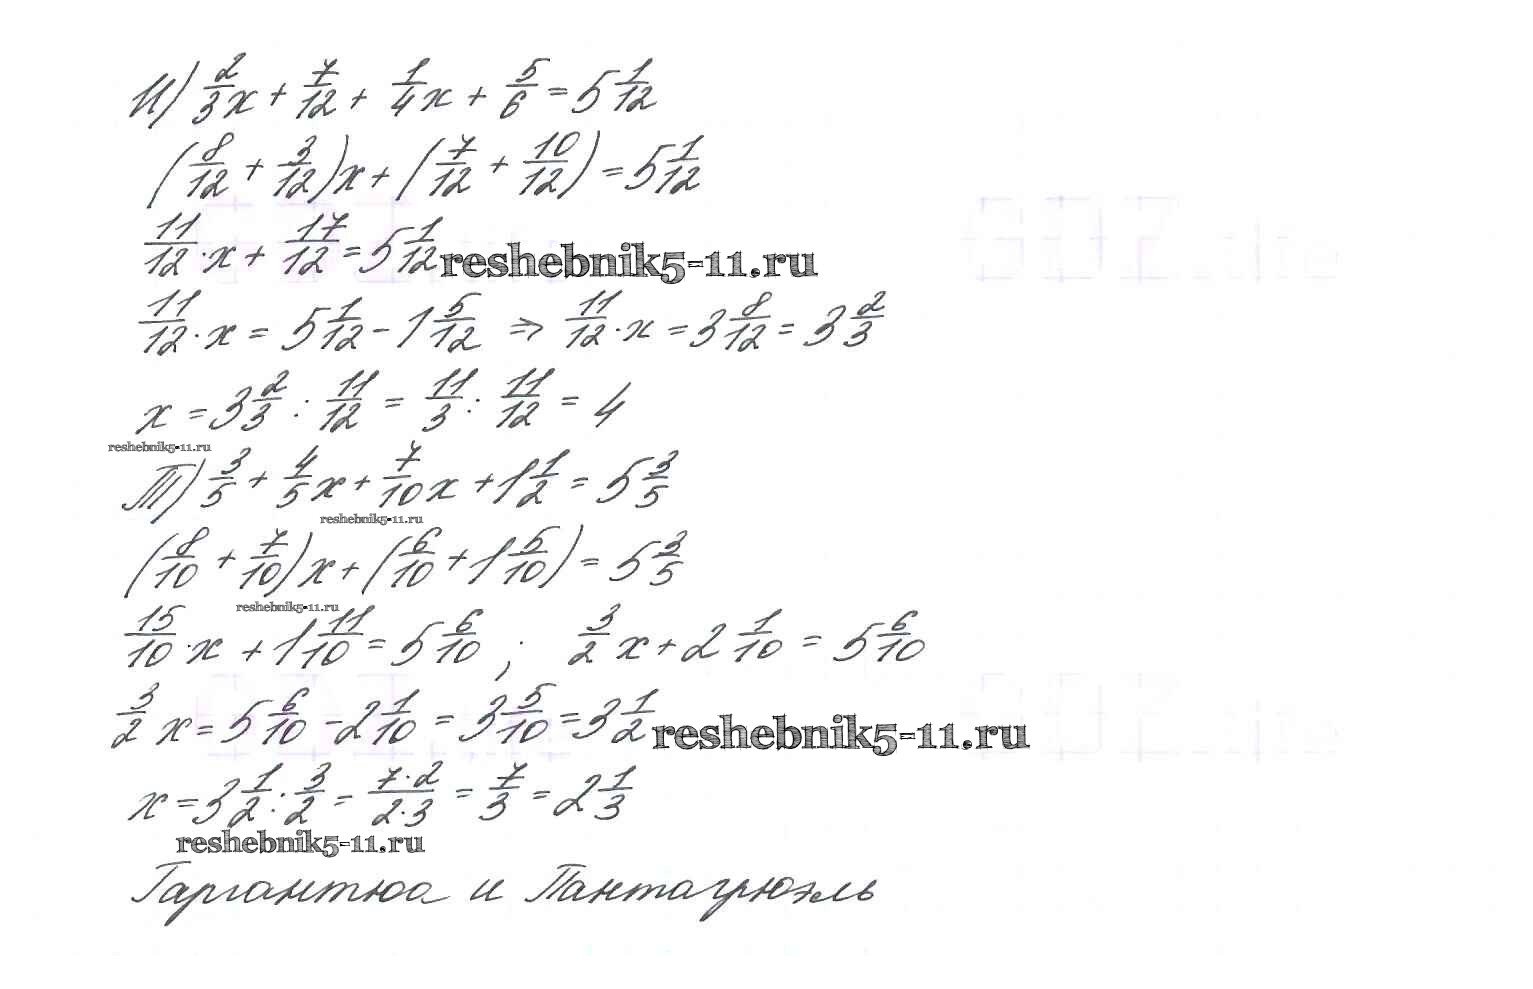 И) 2/3 x + 7/12 + 1/4 x + 5/6 = 5 1/12
(8/12 + 3/12)x + (7/12 + 10/12) = 5 1/12
11/12 · x + 17/12 = 5 1/12
reshebnik5-11.ru
11/12 · x = 5 1/12 - 1 5/12 ⇒ 11/12 · x = 3 8/12 = 3 2/3
x = 3 2/3 : 11/12 = 11/3 : 11/12 = 4
reshebnik5-11.ru
Т) 3/5 + 4/5 x + 7/10 x + 1 1/2 = 5 3/5
reshebnik5-11.ru
(8/10 + 7/10)x + (6/10 + 1 5/10) = 5 3/5
reshebnik5-11.ru
15/10 · x + 1 11/10 = 5 6/10 ; 3/2 x + 2 1/10 = 5 6/10
3/2 x = 5 6/10 - 2 1/10 = 3 5/10 = 3 1/2
reshebnik5-11.ru
x = 3 1/2 : 3/2 = 7·2/2·3 = 7/3 = 2 1/3
reshebnik5-11.ru
Гаргантюа и Пантагрюэль